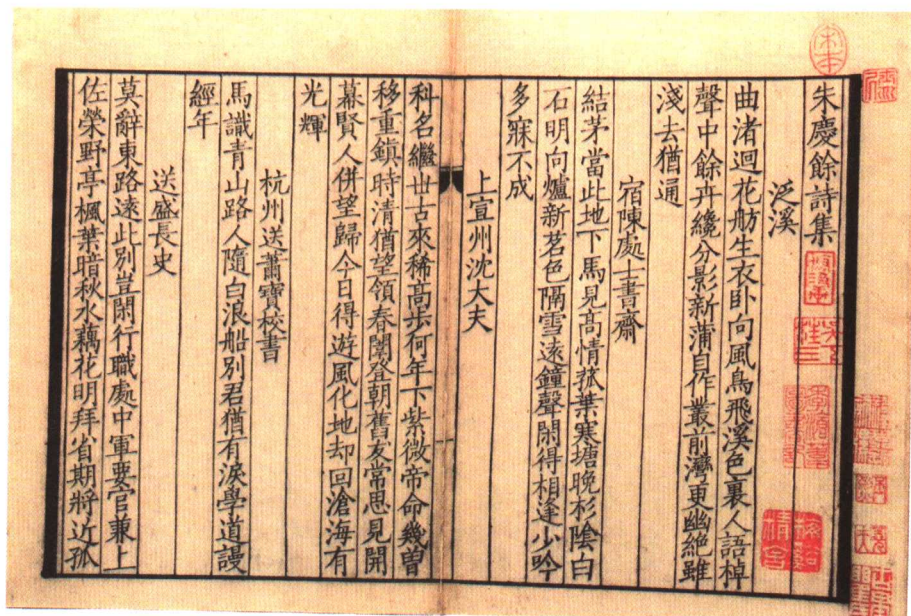 朱慶餘詩集
泛溪
曲渚迴花舫生衣卧向風鳥飛溪色裏人語棹
聲中餘卉纔分影新蒲自作叢前灣更幽絶雖
淺去猶通
宿陳處士書齋
結茅當此地下馬見高情菰葉寒塘晚杉陰白
石明向爐新茗色隔雪遠鐘聲閑得相逢少吟
多寐不成
上宣州沈大夫
科名繼世古來稀高步何年下紫微帝命幾曽
移重鎮時清猶望領春闈登朝舊友常思見開
幕賢人併望歸今日得遊風化地却回滄海有
光輝
杭州送蕭寶校書
馬識青山路人隨白浪船別君猶有淚學道謾
經年
送盛長史
莫辭東路遠此別豈閑行職處中軍要官兼上
佐榮野亭楓葉暗秋水藕花明拜省期將近孤